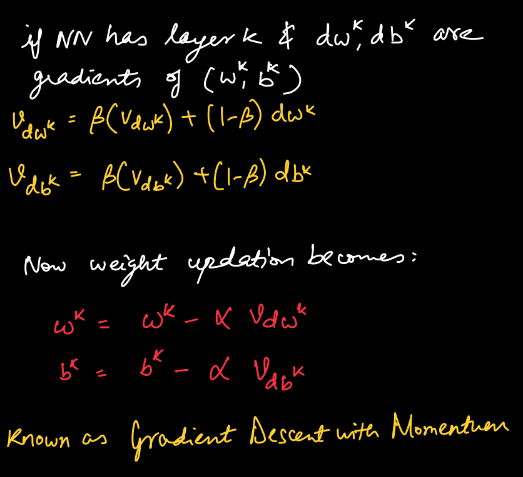 if NN has layer k & dw^k, db^k are
gradients of (w^k, b^k)
V_dw^k = β(V_dw^k) + (1-β) dw^k
V_db^k = β(V_db^k) + (1-β) db^k
Now weight updation becomes:
w^k = w^k - α V_dw^k
b^k = b^k - α V_db^k
Known as Gradient Descent with Momentum